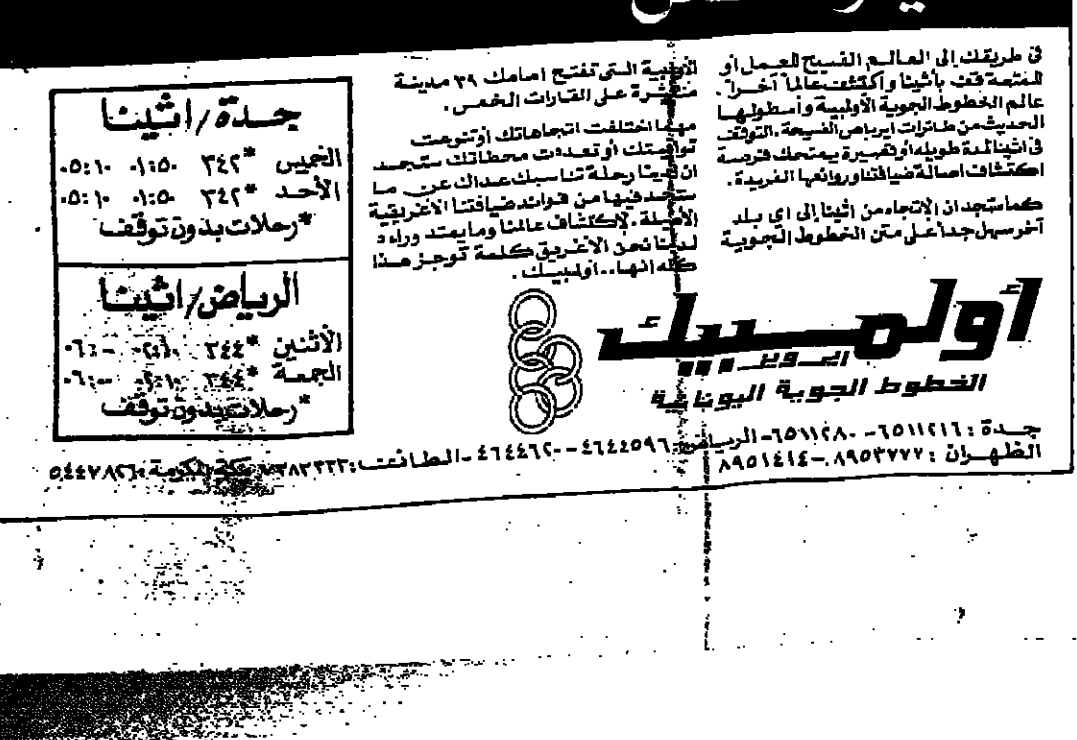 في طريقك إلى العالم الفسيح للعمل أو
للمتعة قف بأثينا واكتشف عالماً آخراً.
عالم الخطوط الجوية الأولمبية وأسطولها
الحديث من طائرات ايرباص الفسيحة. التوقف
في اثينا لمدة طويله أو قصيرة يمنحك فرصة
اكتشاف اصالة ضيافتنا وروائعها الفريدة.
كما ستجد ان الإتجاه من اثينا إلى اي بلد
آخر سهل جداً على متن الخطوط الجوية
الأولمبية التي تفتح امامك ٣٩ مدينة
منتشرة على القارات الخمس.
مهما اختلفت اتجاهاتك أو تنوعت
أو تعددت محطاتك ستجد
ان رحلة تناسبك عداك عن ما
ستجد فيها من فوائد ضيافتنا الاغريقية
الأصيلة. لإكتشاف عالمنا وما يمتد وراءه
لدينا نحن الاغريق كلمة توجز هذا
كله انها.. اولمبيك.
جدة/اثينا
الخميس *٣٤٢ ٠١:٥٠ ٠٥:١٠
الأحد *٣٤٢ ٠١:٥٠ ٠٥:١٠
*رحلات بدون توقف
الرياض/اثينا
الأثنين *٣٤٤ ٠٢:١٠ ٠٦:٠٠
الجمعة *٣٤٤ ٠٢:١٠ ٠٦:٠٠
*رحلات بدون توقف
أولمبيك
ايرويز
الخطوط الجوية اليونانية
جدة: ٦٥١١٢١٦ - ٦٥١١٢٨٠ - الرياض: ٤٦٤٤٥٩٦ - ٤٦٤٤٦٢٠ - الطائف: ٧٣٨٣٢٢٣ مكة المكرمة: ٥٤٤٧٨٢٦
الظهران: ٨٩٥٣٧٧٧ - ٨٩٥١٤١٤